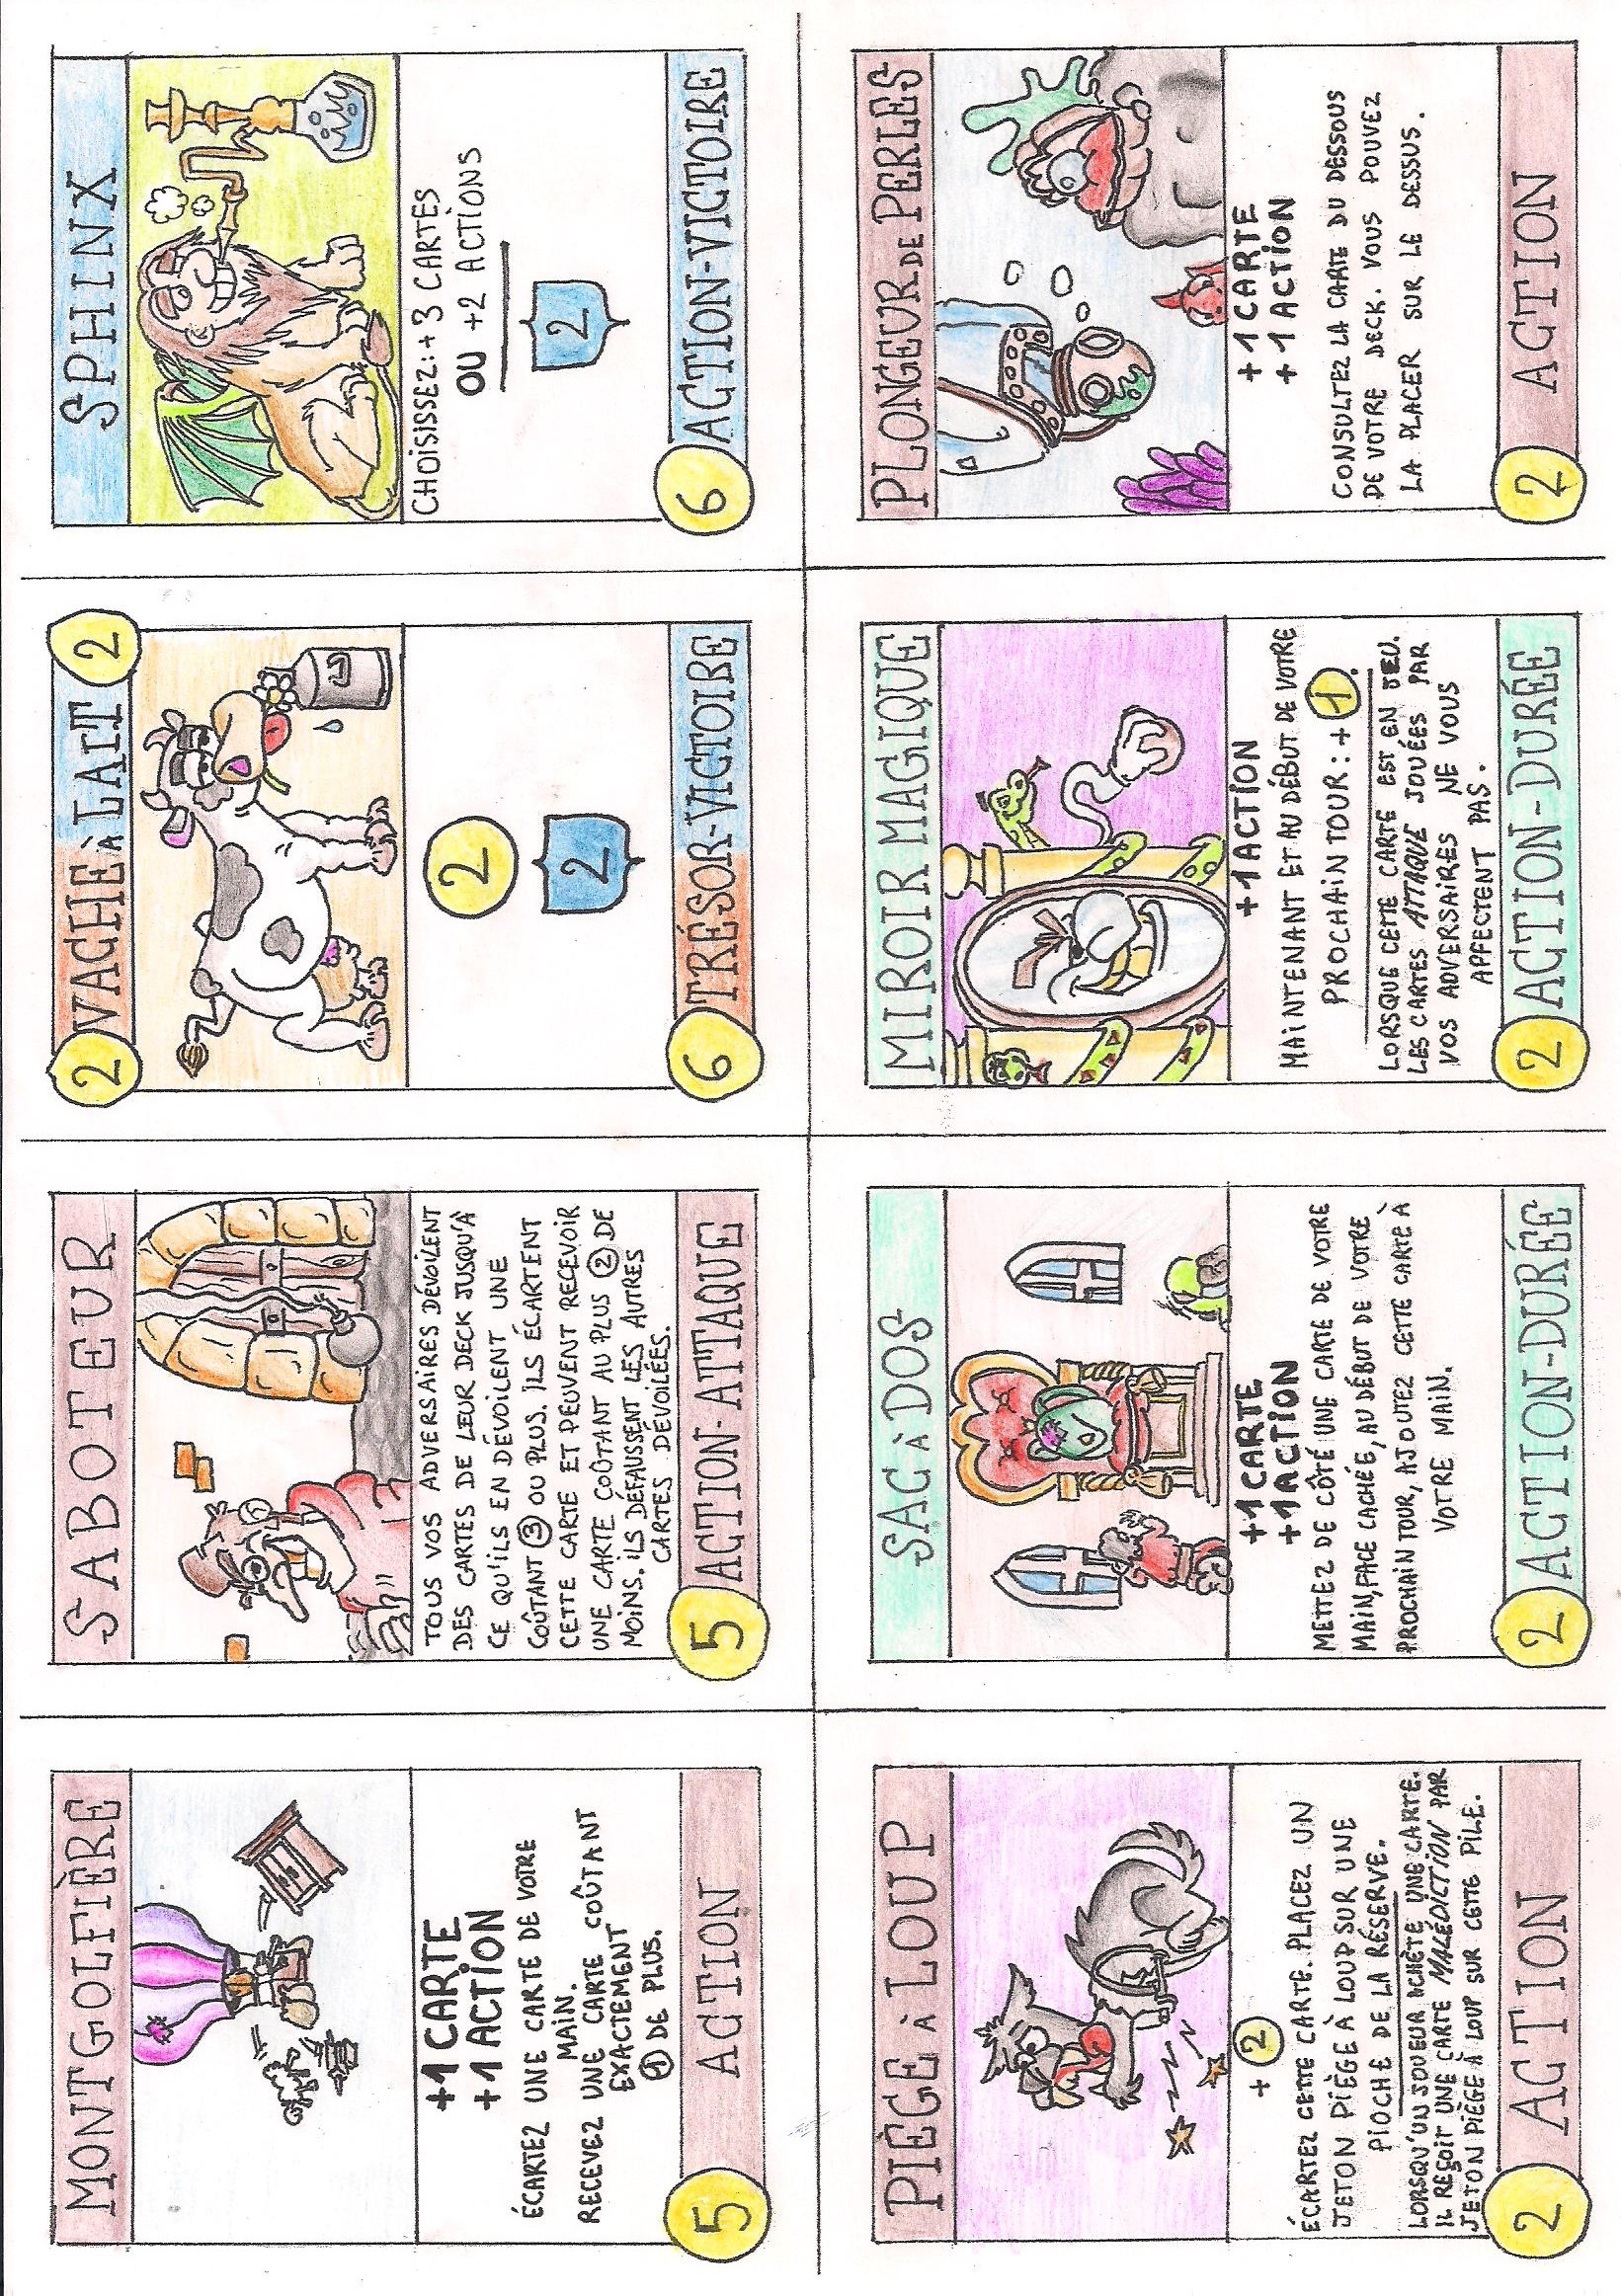 MONTGOLFIÈRE
+1 CARTE
+1 ACTION
ÉCARTEZ UNE CARTE DE VOTRE
MAIN.
RECEVEZ UNE CARTE COÛTANT
EXACTEMENT
1 DE PLUS.
5 ACTION
SABOTEUR
TOUS VOS ADVERSAIRES DÉVOILENT
DES CARTES DE LEUR DECK JUSQU'À
CE QU'ILS EN DÉVOILENT UNE
COÛTANT 3 OU PLUS. ILS ÉCARTENT
CETTE CARTE ET PEUVENT RECEVOIR
UNE CARTE COÛTANT AU PLUS 2 DE
MOINS. ILS DÉFAUSSENT LES AUTRES
CARTES DÉVOILÉES.
5 ACTION-ATTAQUE
2 VACHE À LAIT 2
2
2
6 TRÉSOR-VICTOIRE
SPHINX
CHOISISSEZ: + 3 CARTES
OU +2 ACTIONS
2
6 ACTION-VICTOIRE
PIÈGE À LOUP
+ 2
ÉCARTEZ CETTE CARTE. PLACEZ UN
JETON PIÈGE À LOUP SUR UNE
PIOCHE DE LA RÉSERVE.
LORSQU'UN JOUEUR ACHÈTE UNE CARTE.
IL REÇOIT UNE CARTE MALÉDICTION PAR
JETON PIÈGE À LOUP SUR CETTE PILE.
2 ACTION
SAC À DOS
+1 CARTE
+1 ACTION
METTEZ DE CÔTÉ UNE CARTE DE VOTRE
MAIN, FACE CACHÉE, AU DÉBUT DE VOTRE
PROCHAIN TOUR, AJOUTEZ CETTE CARTE À
VOTRE MAIN.
2 ACTION-DURÉE
MIROIR MAGIQUE
+1 ACTION
MAINTENANT ET AU DÉBUT DE VOTRE
PROCHAIN TOUR: + 1.
LORSQUE CETTE CARTE EST EN JEU.
LES CARTES ATTAQUE JOUÉES PAR
VOS ADVERSAIRES NE VOUS
AFFECTENT PAS.
2 ACTION-DURÉE
PLONGEUR DE PERLES
+ 1 CARTE
+ 1 ACTION
CONSULTEZ LA CARTE DU DESSOUS
DE VOTRE DECK. VOUS POUVEZ
LA PLACER SUR LE DESSUS.
2 ACTION